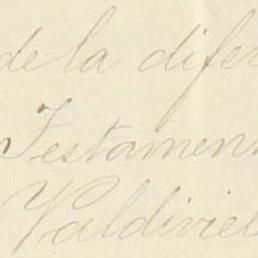 de la difer
Testamen
Valdivie